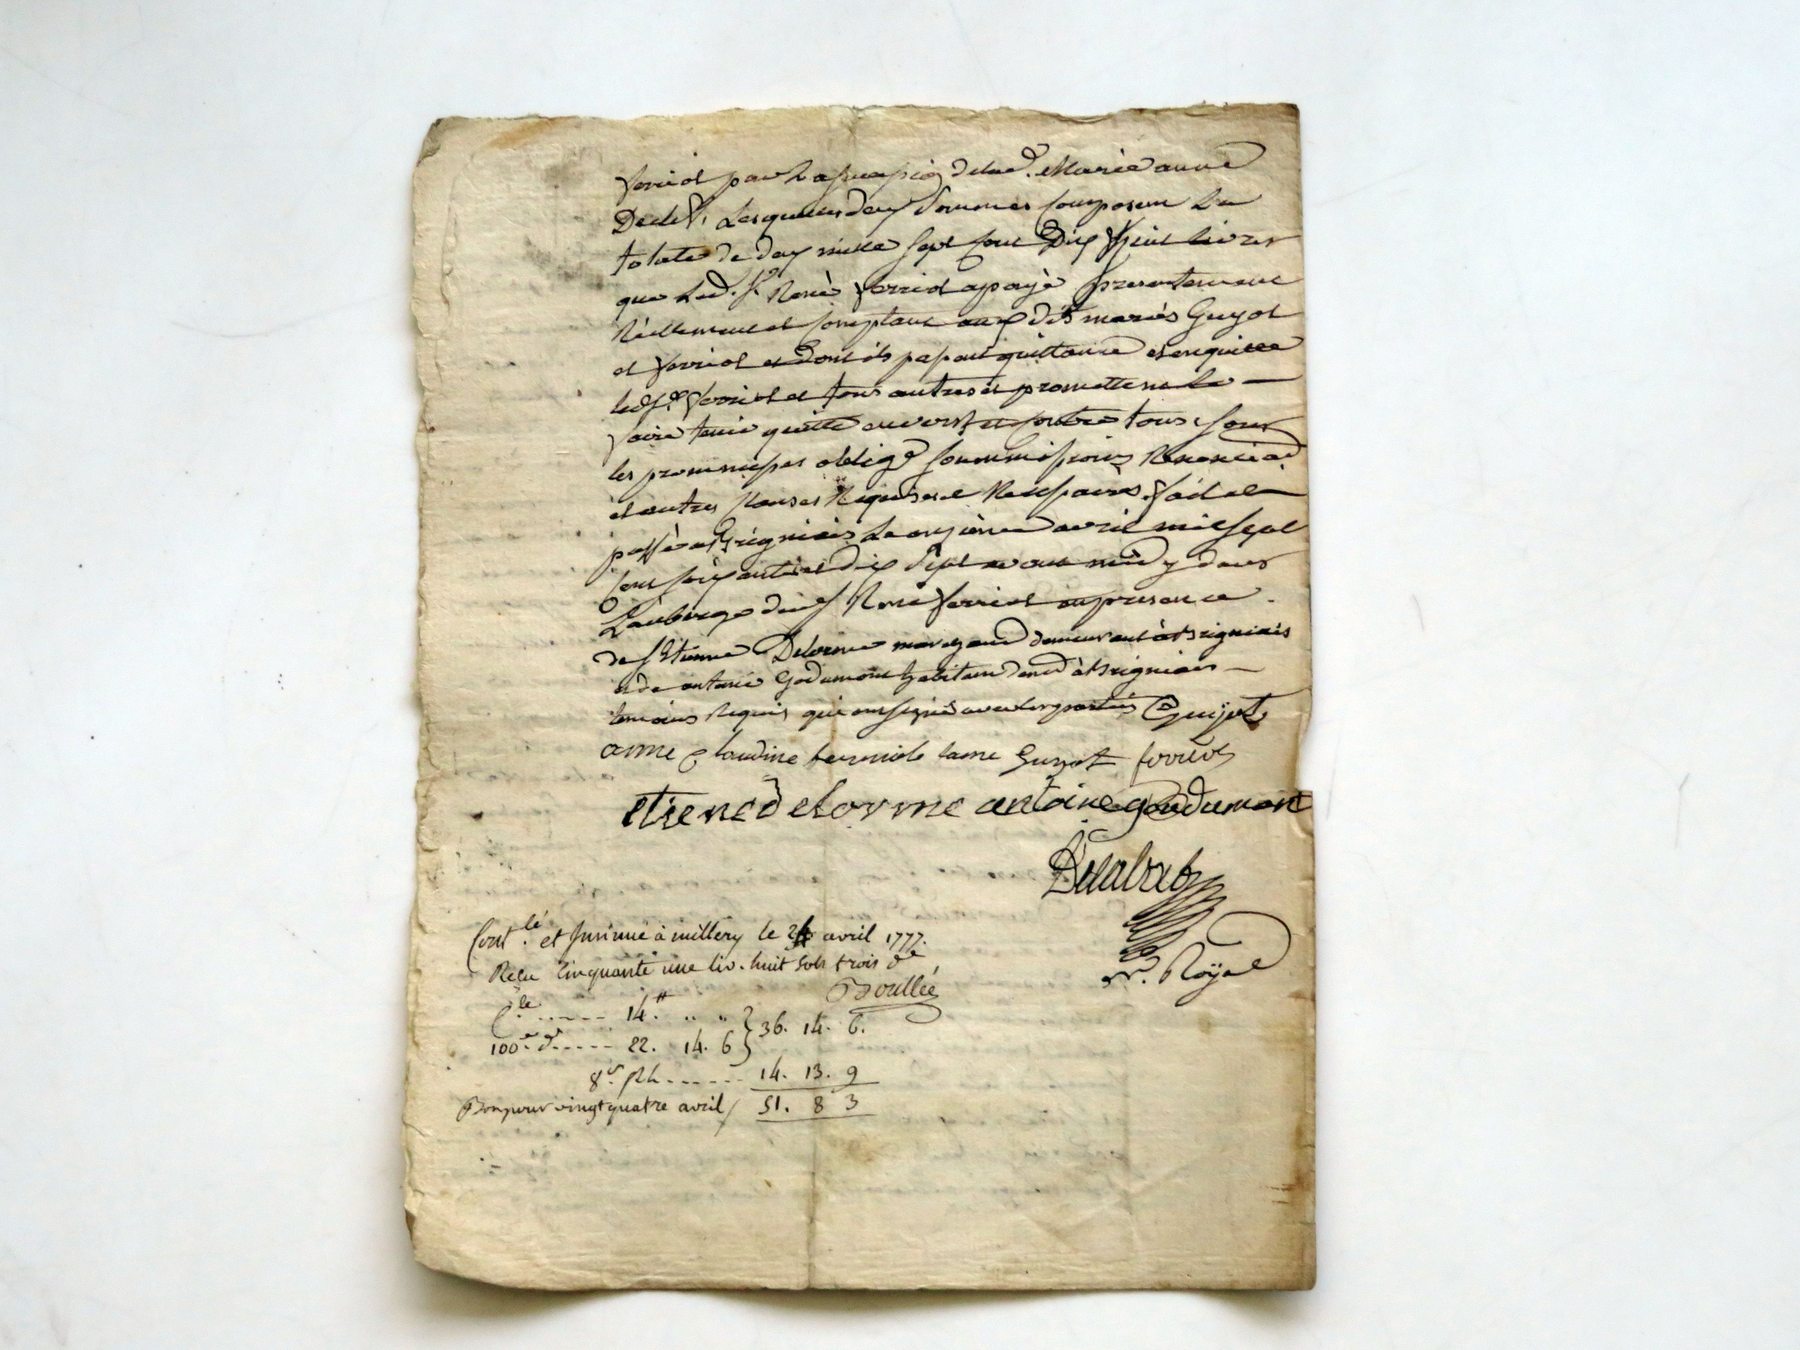 ferriol par la succession de lad. Marie anne
Decle, Lesquelles deux sommes composent La
totale de deux mille sept cent Dix huit livres
que led. Sr René ferriol a payé presentement
Réellement et comptant aux dits mariés Guyot
et ferriol et dont ils passent quittance et en quitte
led. Sr ferriol et tous autres et promettent Le
faire tenir quitte envers et contre tous, sous
les promesses oblige soummissions Renonciaõ
et autres clauses Requises et Necessaires. fait et
passé a Brignais Le onzieme avril mil sept
cent soixante et dix sept avant midy dans
L'auberge dud. Sr René ferriol en presence
de Sr Etienne Delorme marchand demeurant à Brignais
et de antoine Godumont habitant dud. à Brignais
temoins Requis qui ont signé avec les parties Guyot
anne Claudine ferriole fame Guyot ferriol
etiene delorme antoine goudumont
Delabat
nre. Royal
Cont.lé et Insinué à millery le 24 avril 1777.
Reçu cinquante une liv. huit sols trois de
Boullée
C.le ----- 14.tt " " } 36. 14. 6.
100e d. ----- 22. 14. 6 }
8s. pr. L. ------ 14. 13. 9
Bon pour vingt quatre avril / 51. 8 3